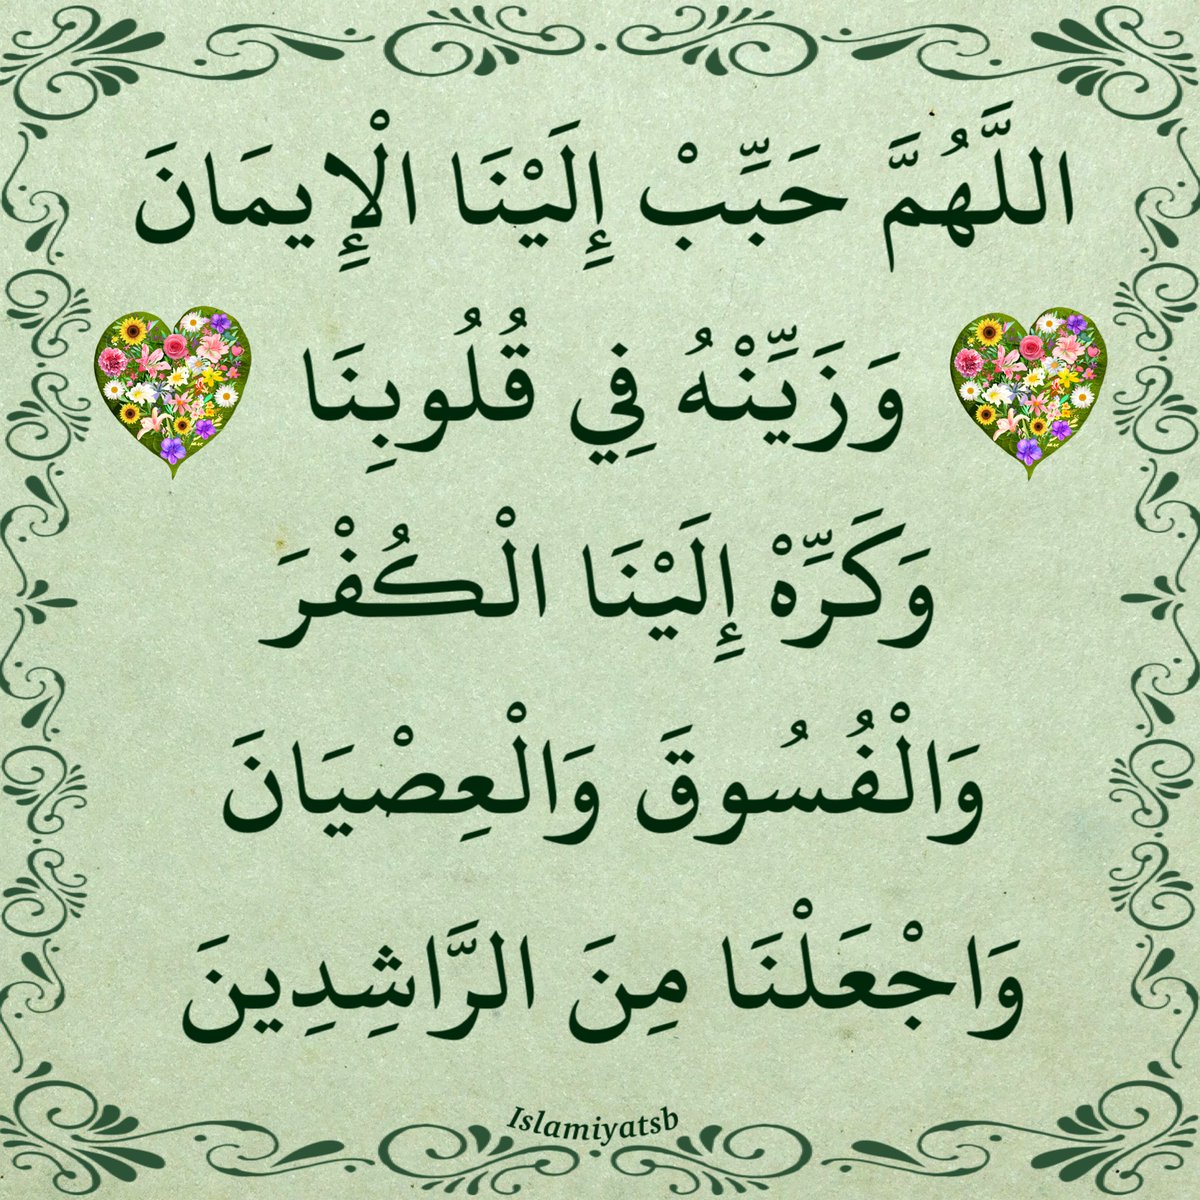 اللَّهُمَّ حَبِّبْ إِلَيْنَا الْإِيمَانَ
وَزَيِّنْهُ فِي قُلُوبِنَا
وَكَرِّهْ إِلَيْنَا الْكُفْرَ
وَالْفُسُوقَ وَالْعِصْيَانَ
وَاجْعَلْنَا مِنَ الرَّاشِدِينَ
Islamiyatsb